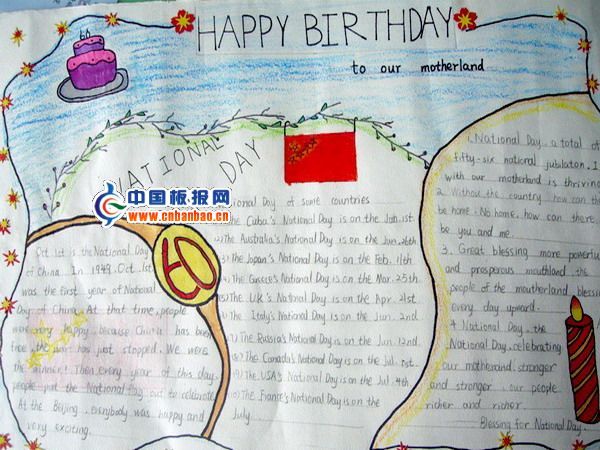 HAPPY BIRTHDAY
to our motherland
60
NATIONAL
DAY
中国板报网
www.cnbanbao.cn
60
Oct 1st is the National Day
of China. In 1949. Oct. 1st
was the first year of National
Day of China. At that time, people
were very happy, because China has been
free, the war has just stopped. We were
the winner! Then every year of this day,
people put the National Day out to celebrate
At the Beijing. everybody was happy and
very exciting.
National Day of some countries
The Cuba's National Day is on the Jan. 1st
The Australia's National Day is on the Jan. 26th
The Japan's National Day is on the Feb. 11th
The Greece's National Day is on the Mar. 25th
The U.k's National Day is on the Apr. 21st
The Italy's National Day is on the Jun. 2nd
The Russia's National Day is on the Jun. 12nd
The Canada's National Day is on the Jul. 1st
The USA's National Day is on the Jul. 4th
The France's National Day is on the
July
1. National Day. a total of
fifty-six national jubilation. I
with our motherland is thriving
2. Without the country, how can the
be home. No home, how can there
be you and me.
3. Great blessing more powerful
and prosperous mouthland. the
people of the mountherland blessing
every day upward.
4. National Day. the
National Day. celebrating
our motherland. stronger
and stronger. our people
richer and richer.
Blessing for National Day.